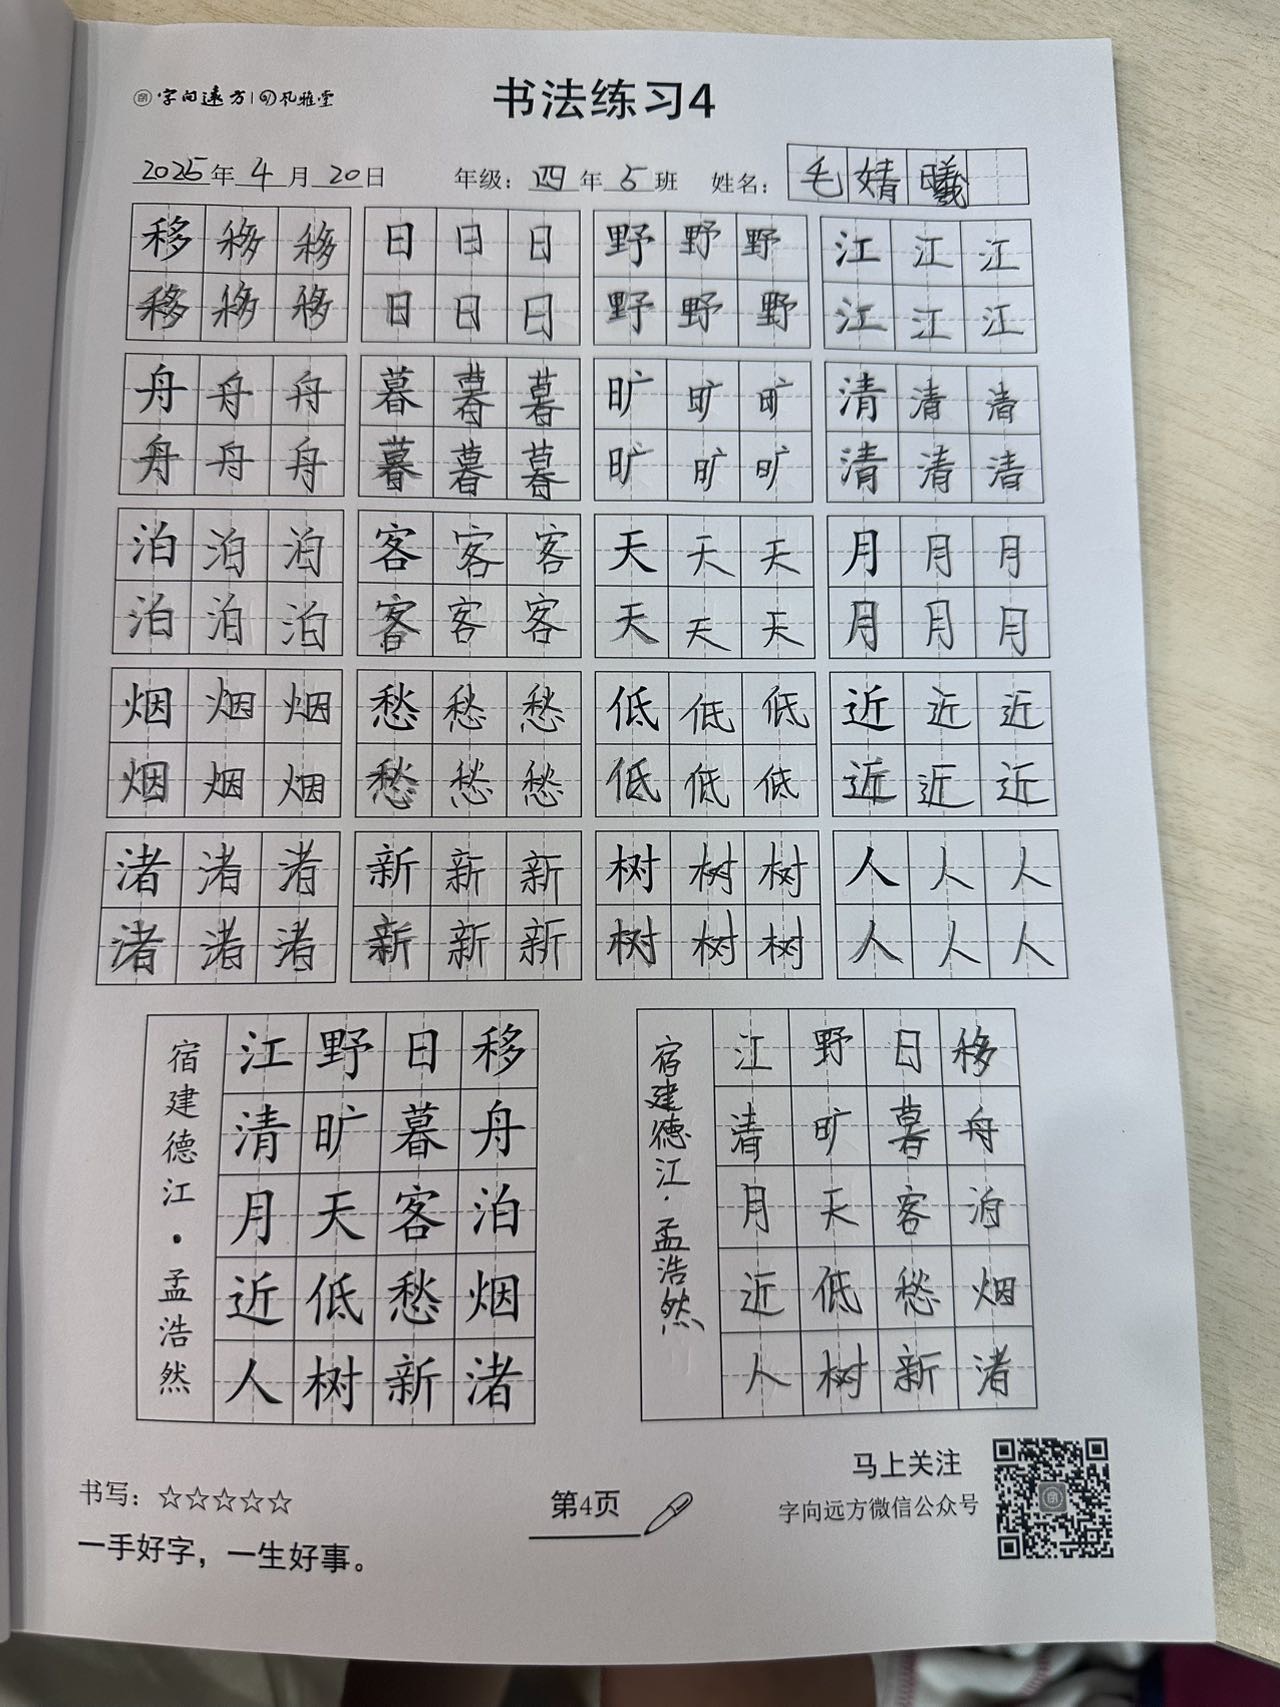 字向远方 | 风雅堂
书法练习4
2025年 4月 20日 年级：四年 5班 姓名：毛婧曦
移移移 日日日 野野野 江江江
移移移 日日日 野野野 江江江
舟舟舟 暮暮暮 旷旷旷 清清清
舟舟舟 暮暮暮 旷旷旷 清清清
泊泊泊 客客客 天天天 月月月
泊泊泊 客客客 天天天 月月月
烟烟烟 愁愁愁 低低低 近近近
烟烟烟 愁愁愁 低低低 近近近
渚渚渚 新新新 树树树 人人人
渚渚渚 新新新 树树树 人人人
移舟泊烟渚
日暮客愁新
野旷天低树
江清月近人
宿建德江·孟浩然
移舟泊烟渚
日暮客愁新
野旷天低树
江清月近人
宿建德江·孟浩然
书写：☆☆☆☆☆
一手好字，一生好事。
第4页
马上关注
字向远方微信公众号